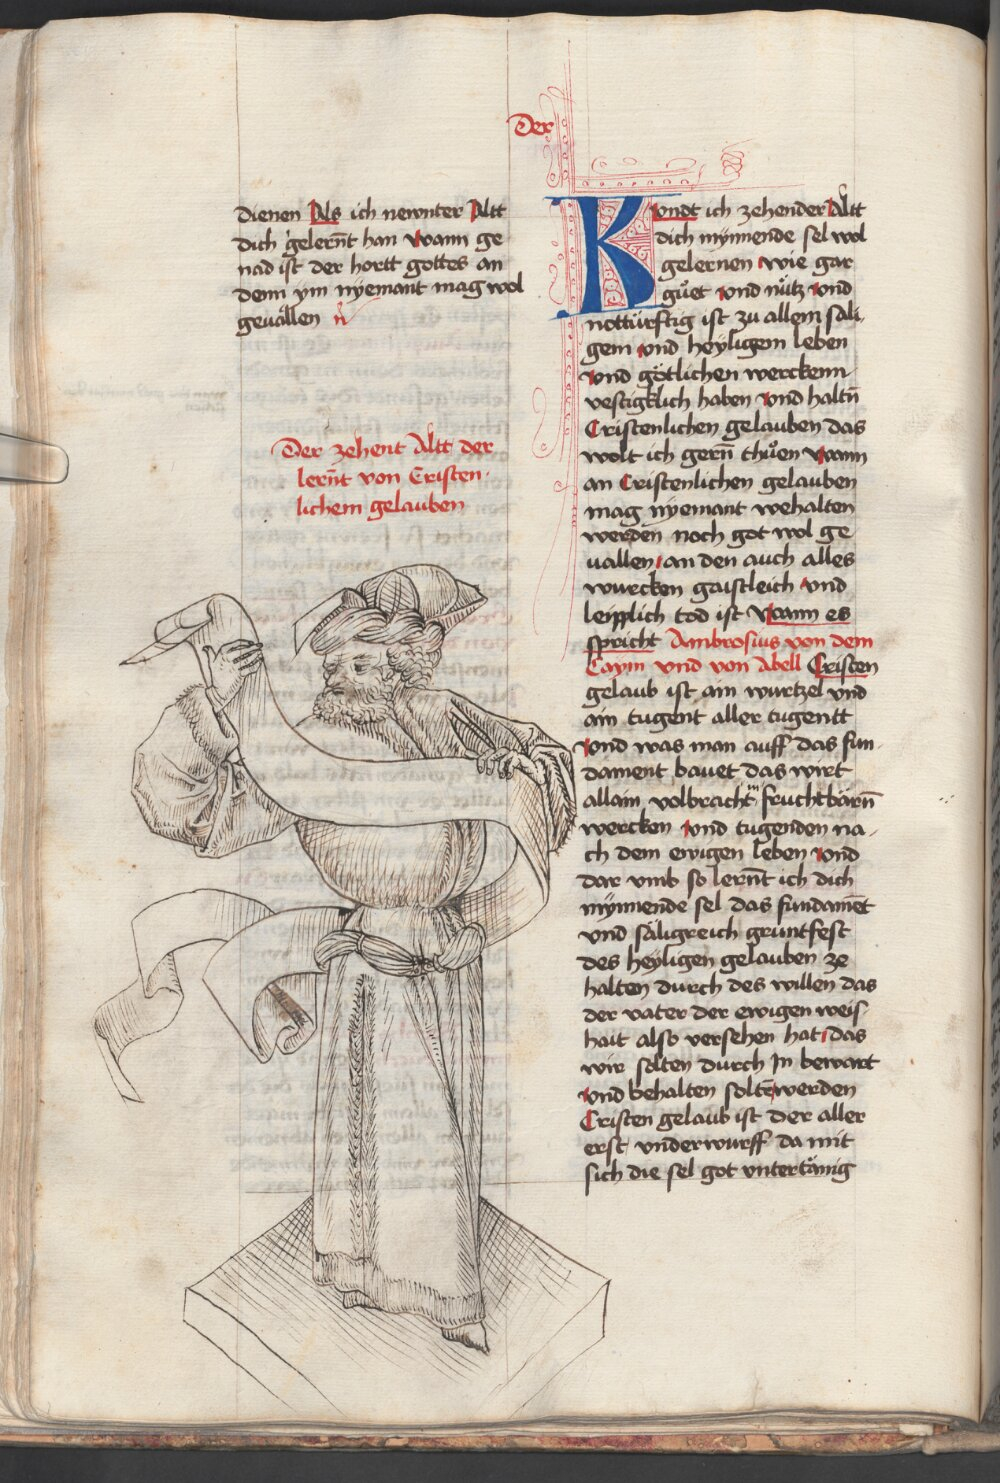 Der
dienen Als ich newnter Altt
dich gelernt han wann ge
nad ist der hortt gottes an
denn ym nyemant mag wol
geuallen
Der zehent Altt der
lernt von Cristen
lichem gelauben
Kundt ich zehender Altt
dich mynnende sel wol
gelernen wie gar
gůet vnd nütz vnd
notturftig ist zu allem säli
gem vnd heyligem leben
vnd götlichen werckenn
vestigklich haben vnd haltn̄
Cristenlichen gelauben das
wolt ich gern̄ thůen wann
an Cristenlichen gelauben
mag nyemant wehalten
werden noch got wol ge
uallen an den auch alles
wurcken gaistleich vnd
leipplich tod ist wann es
spricht Ambrosius von dem
Caym vnd von Abell Cristen
gelaub ist ain wurtzel vnd
ain tugent aller tugentt
vnd was man auff das fun
dament bauet das wirt
allain volbracht in fruchtbärn̄
wercken vnd tugenden na
ch dem ewigen leben vnd
dar vmb so lern̄t ich dich
mynnende sel das fundamēt
vnd säligreich gruntfest
des heyligen gelauben ze
halten durch des willen das
der vater der ewigen weis
hait also versehen hat das
wir solten durch In bewart
vnd behalten soltē werden
Cristen gelaub ist der aller
erst vnderwurff da mit
sich die sel got vntertänig